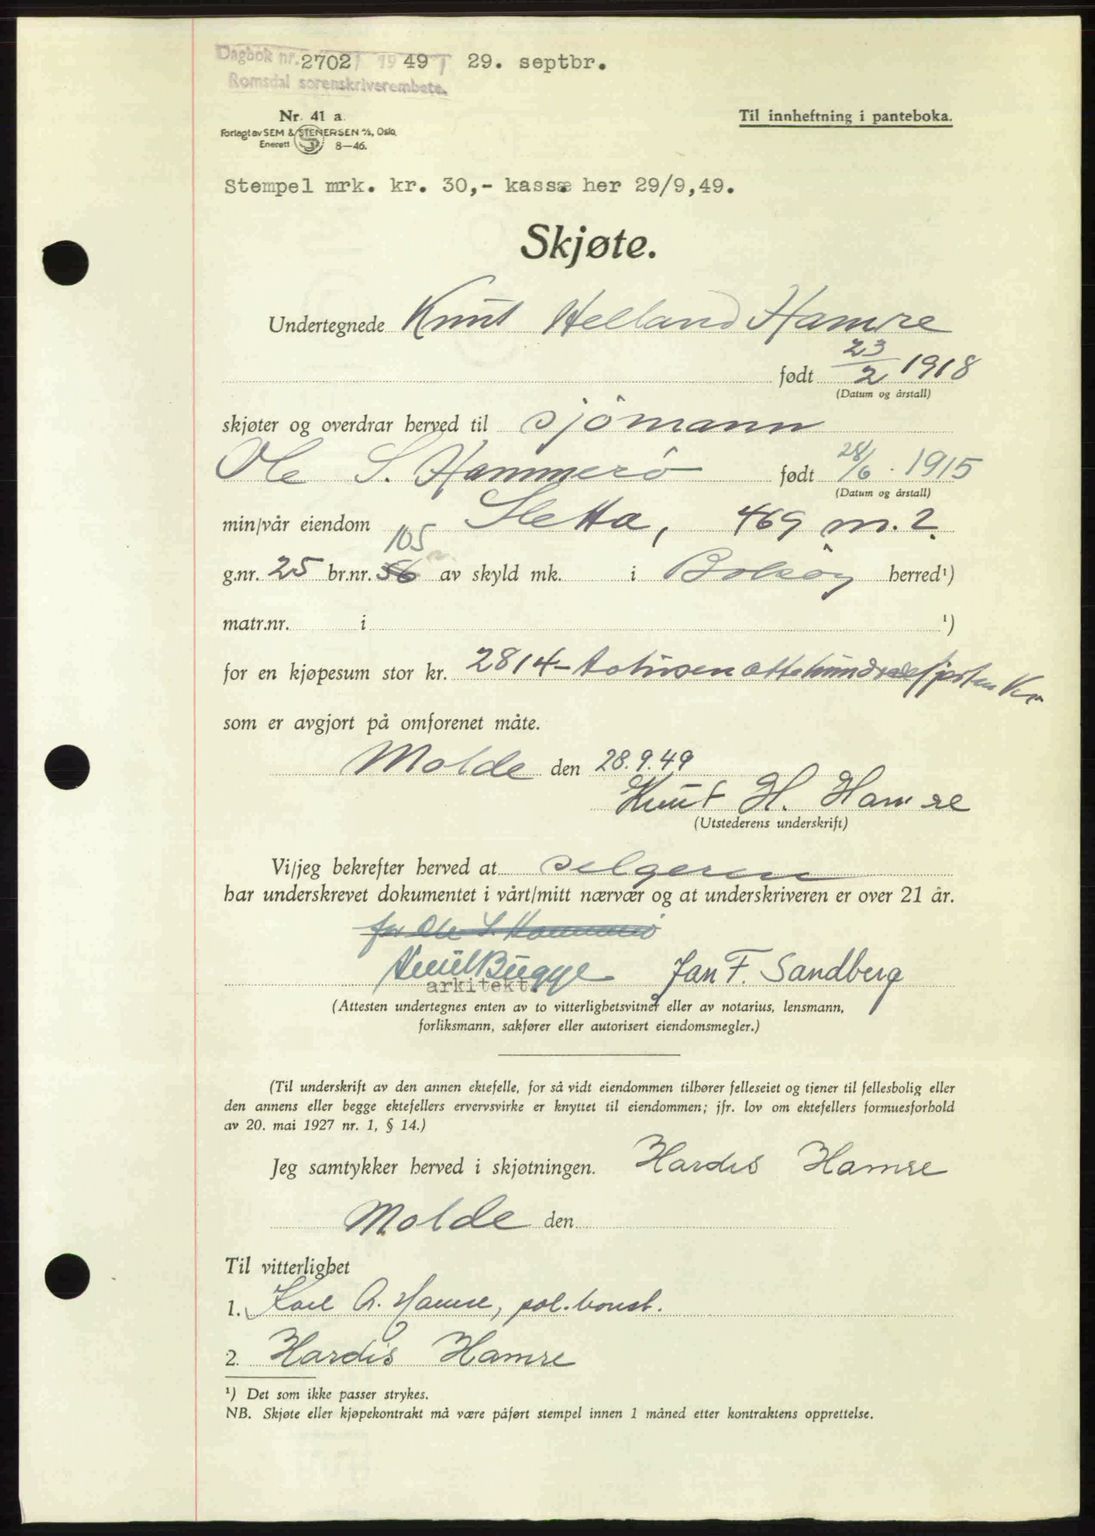 Dagbok nr. 2702 1949 29. septbr.
Romsdal sorenskriverembete.
Nr. 41 a.
Til innheftning i panteboka.
Forlagt av SEM & STENERSEN A/S, Oslo.
Enerett 8—46.
Stempel mrk. kr. 30,- kassæ her 29/9,49.
Skjøte.
Undertegnede Knut Helland Hamre
født 23/2 1918
(Datum og årstall)
skjøter og overdrar herved til sjömann
Ole S. Hammerö født 28/6. 1915
(Datum og årstall)
min/vår eiendom Sletta, 469 m.2
105
g.nr. 25 br.nr. 56 av skyld mk. i Bolsöy herred¹)
matr.nr. i ¹)
for en kjøpesum stor kr. 2814- totusenåttehundredefjorten Kr
som er avgjort på omforenet måte.
Molde den 28.9.49
Knut H. Hamre
(Utstederens underskrift)
Vi/jeg bekrefter herved at selgeren
har underskrevet dokumentet i vårt/mitt nærvær og at underskriveren er over 21 år.
for Ole S. Hammerö
Bugge Jan F. Sandberg
arkitekt.
(Attesten undertegnes enten av to vitterlighetsvitner eller av notarius, lensmann,
forliksmann, sakfører eller autorisert eiendomsmegler.)
(Til underskrift av den annen ektefelle, for så vidt eiendommen tilhører felleseiet og tjener til fellesbolig eller
den annens eller begge ektefellers ervervsvirke er knyttet til eiendommen; jfr. lov om ektefellers formuesforhold
av 20. mai 1927 nr. 1, § 14.)
Jeg samtykker herved i skjøtningen. Hardis Hamre
Molde den
Til vitterlighet
1. Karl A. Hamre, pol.konst.
2. Hardis Hamre
¹) Det som ikke passer strykes.
NB. Skjøte eller kjøpekontrakt må være påført stempel innen 1 måned etter kontraktens opprettelse.